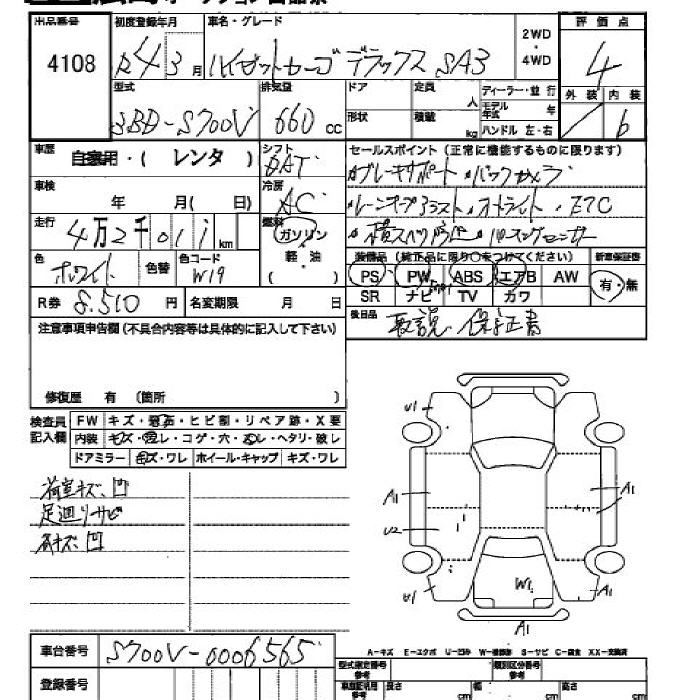 出品番号 初度登録年月 車名・グレード 2WD・4WD 評価点
4108 R4 3月 ハイゼットカーゴ デラックス SA3 4
型式 排気量 ドア 定員 人 ディーラー・並行 外装 内装
3BD-S700V 660cc 形状 積載 kg モデル年式 年 ハンドル 左・右 b
車歴 自家用・(レンタ) シフト DAT セールスポイント (正常に機能するものに限ります)
・ブレーキサポート ・バックカメラ
車検 年 月(日) 冷房 AC
・レーンキープアシスト ・オートライト ・ETC
走行 4万2千011km 燃料 ガソリン・軽油 ( )
・パーキングセンサー
色 ホワイト 色替 色コード W19
装備品 (純正品に限り○をつけてください) 新車保証書
PS PW ABS エアB AW 有・無
SR ナビ TV カワ
R券 8.510円 名変期限 月 日
後日品 取説 保証書
注意事項申告欄 (不具合内容等は具体的に記入して下さい)
修復歴 有 (箇所 )
検査員記入欄 FW キズ・飛石・ヒビ割・リペア跡・X要
内装 キズ・汚レ・コゲ・穴・スレ・ヘタリ・破レ
ドアミラー キズ・ワレ ホイール・キャップ キズ・ワレ
荷室キズ、凹
足廻りサビ
キズ、凹
U1
A1 A1
U2
W1
U1 A1
A1
A-キズ E-エクボ U-凹み W-補修跡 S-サビ C-腐食 XX-交換済
車台番号 S700V-0006565
登録番号
型式指定番号 参考 類別区分番号 参考
車庫証明用 参考 長さ cm 幅 cm 高さ cm